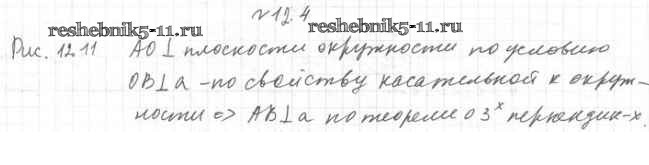 №12.4
reshebnik5-11.ru reshebnik5-11.ru
Рис. 12.11 АО⊥ плоскости окружности по условию
ОВ⊥а - по свойству касательной к окруж-
ности => АВ⊥а по теореме о 3ˣ перпендик-х.